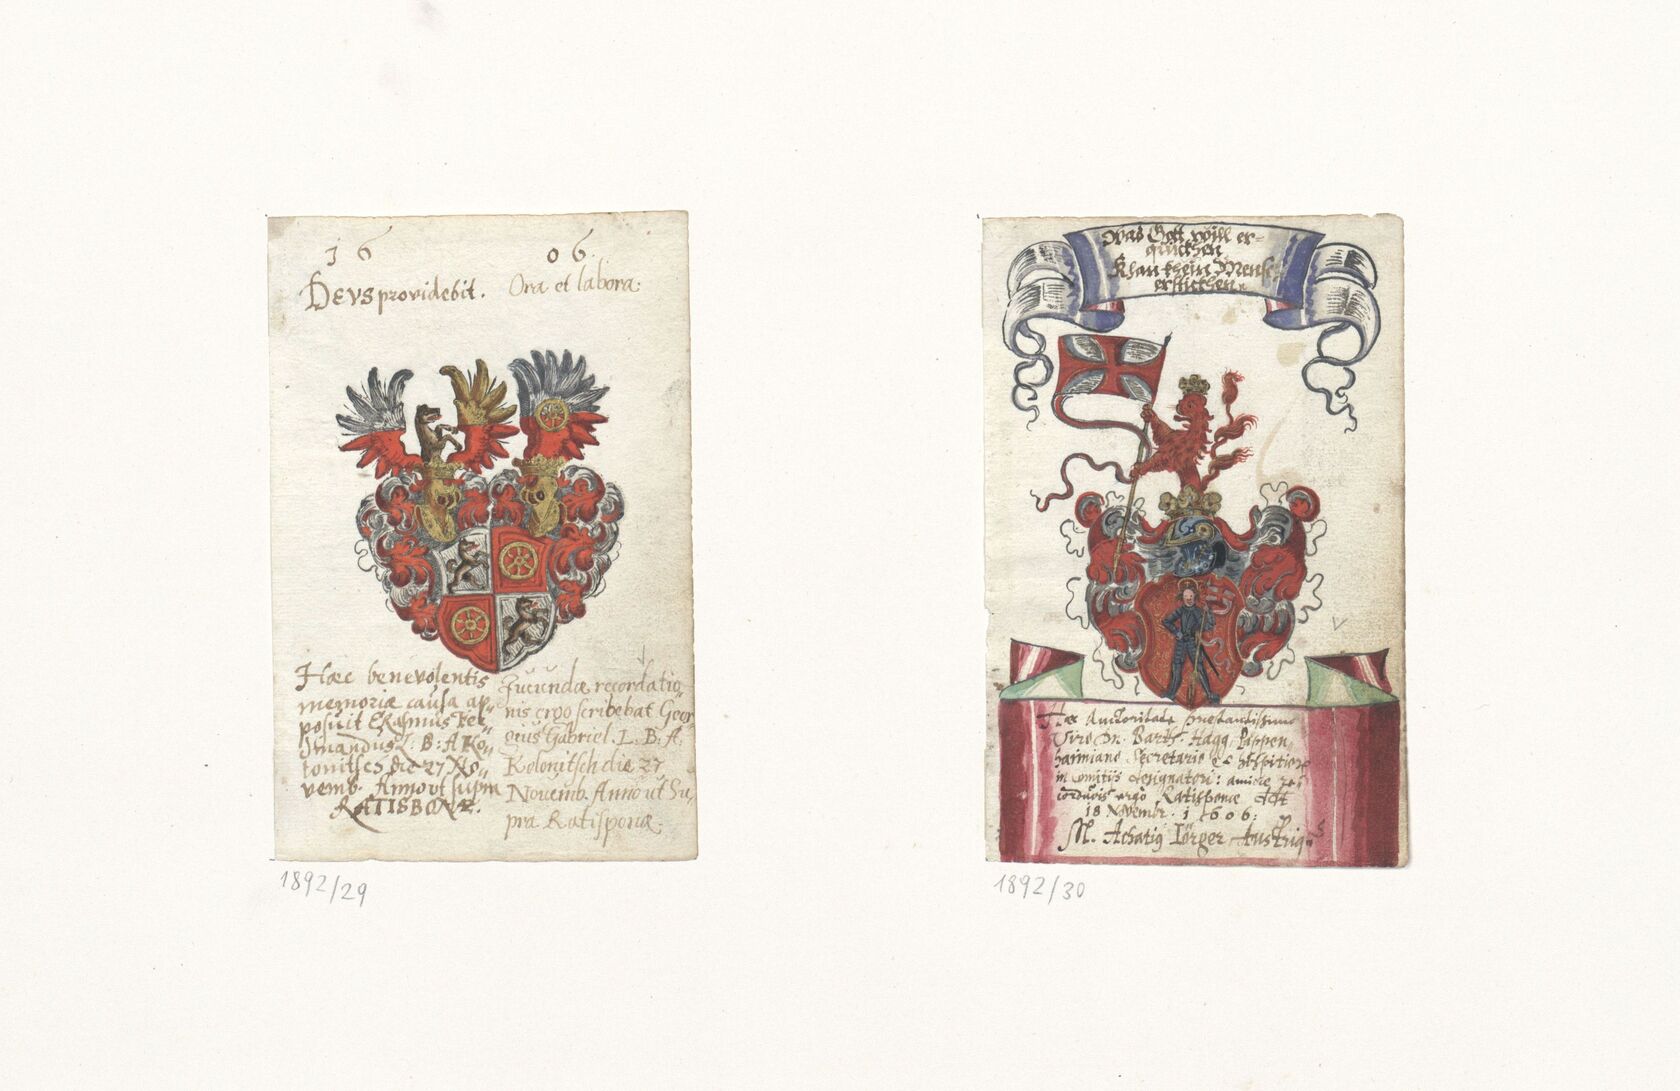 16 06.
DEVS providebit. Ora et labora.
Hæc benevolentis
memoriæ causa ap-
posuit Erasmus Fer-
dinandus L. B. A Ko-
lonitsch die 27 No-
vemb. Anno ut supra
RATISBONÆ.
Jucundæ recordatio-
nis ergo scribebat Geor-
gius Gabriel. L. B. A.
Kolonitsch die 27
Novemb. Anno ut Su-
pra Ratisponæ.
1892/29
Was Gott will er-
quickhen
Khan khein Mensch
ersticken
Hæc Autoritate præstantissimo
Viro Dn. Barth. Hagg. Pappen-
haimiano Secretario et hospitior
in comitis designatori: amicæ re-
cordationis ergo Ratisponæ
18 Novembr. 1606.
M. Achatiq Jörger Austriaqs
1892/30